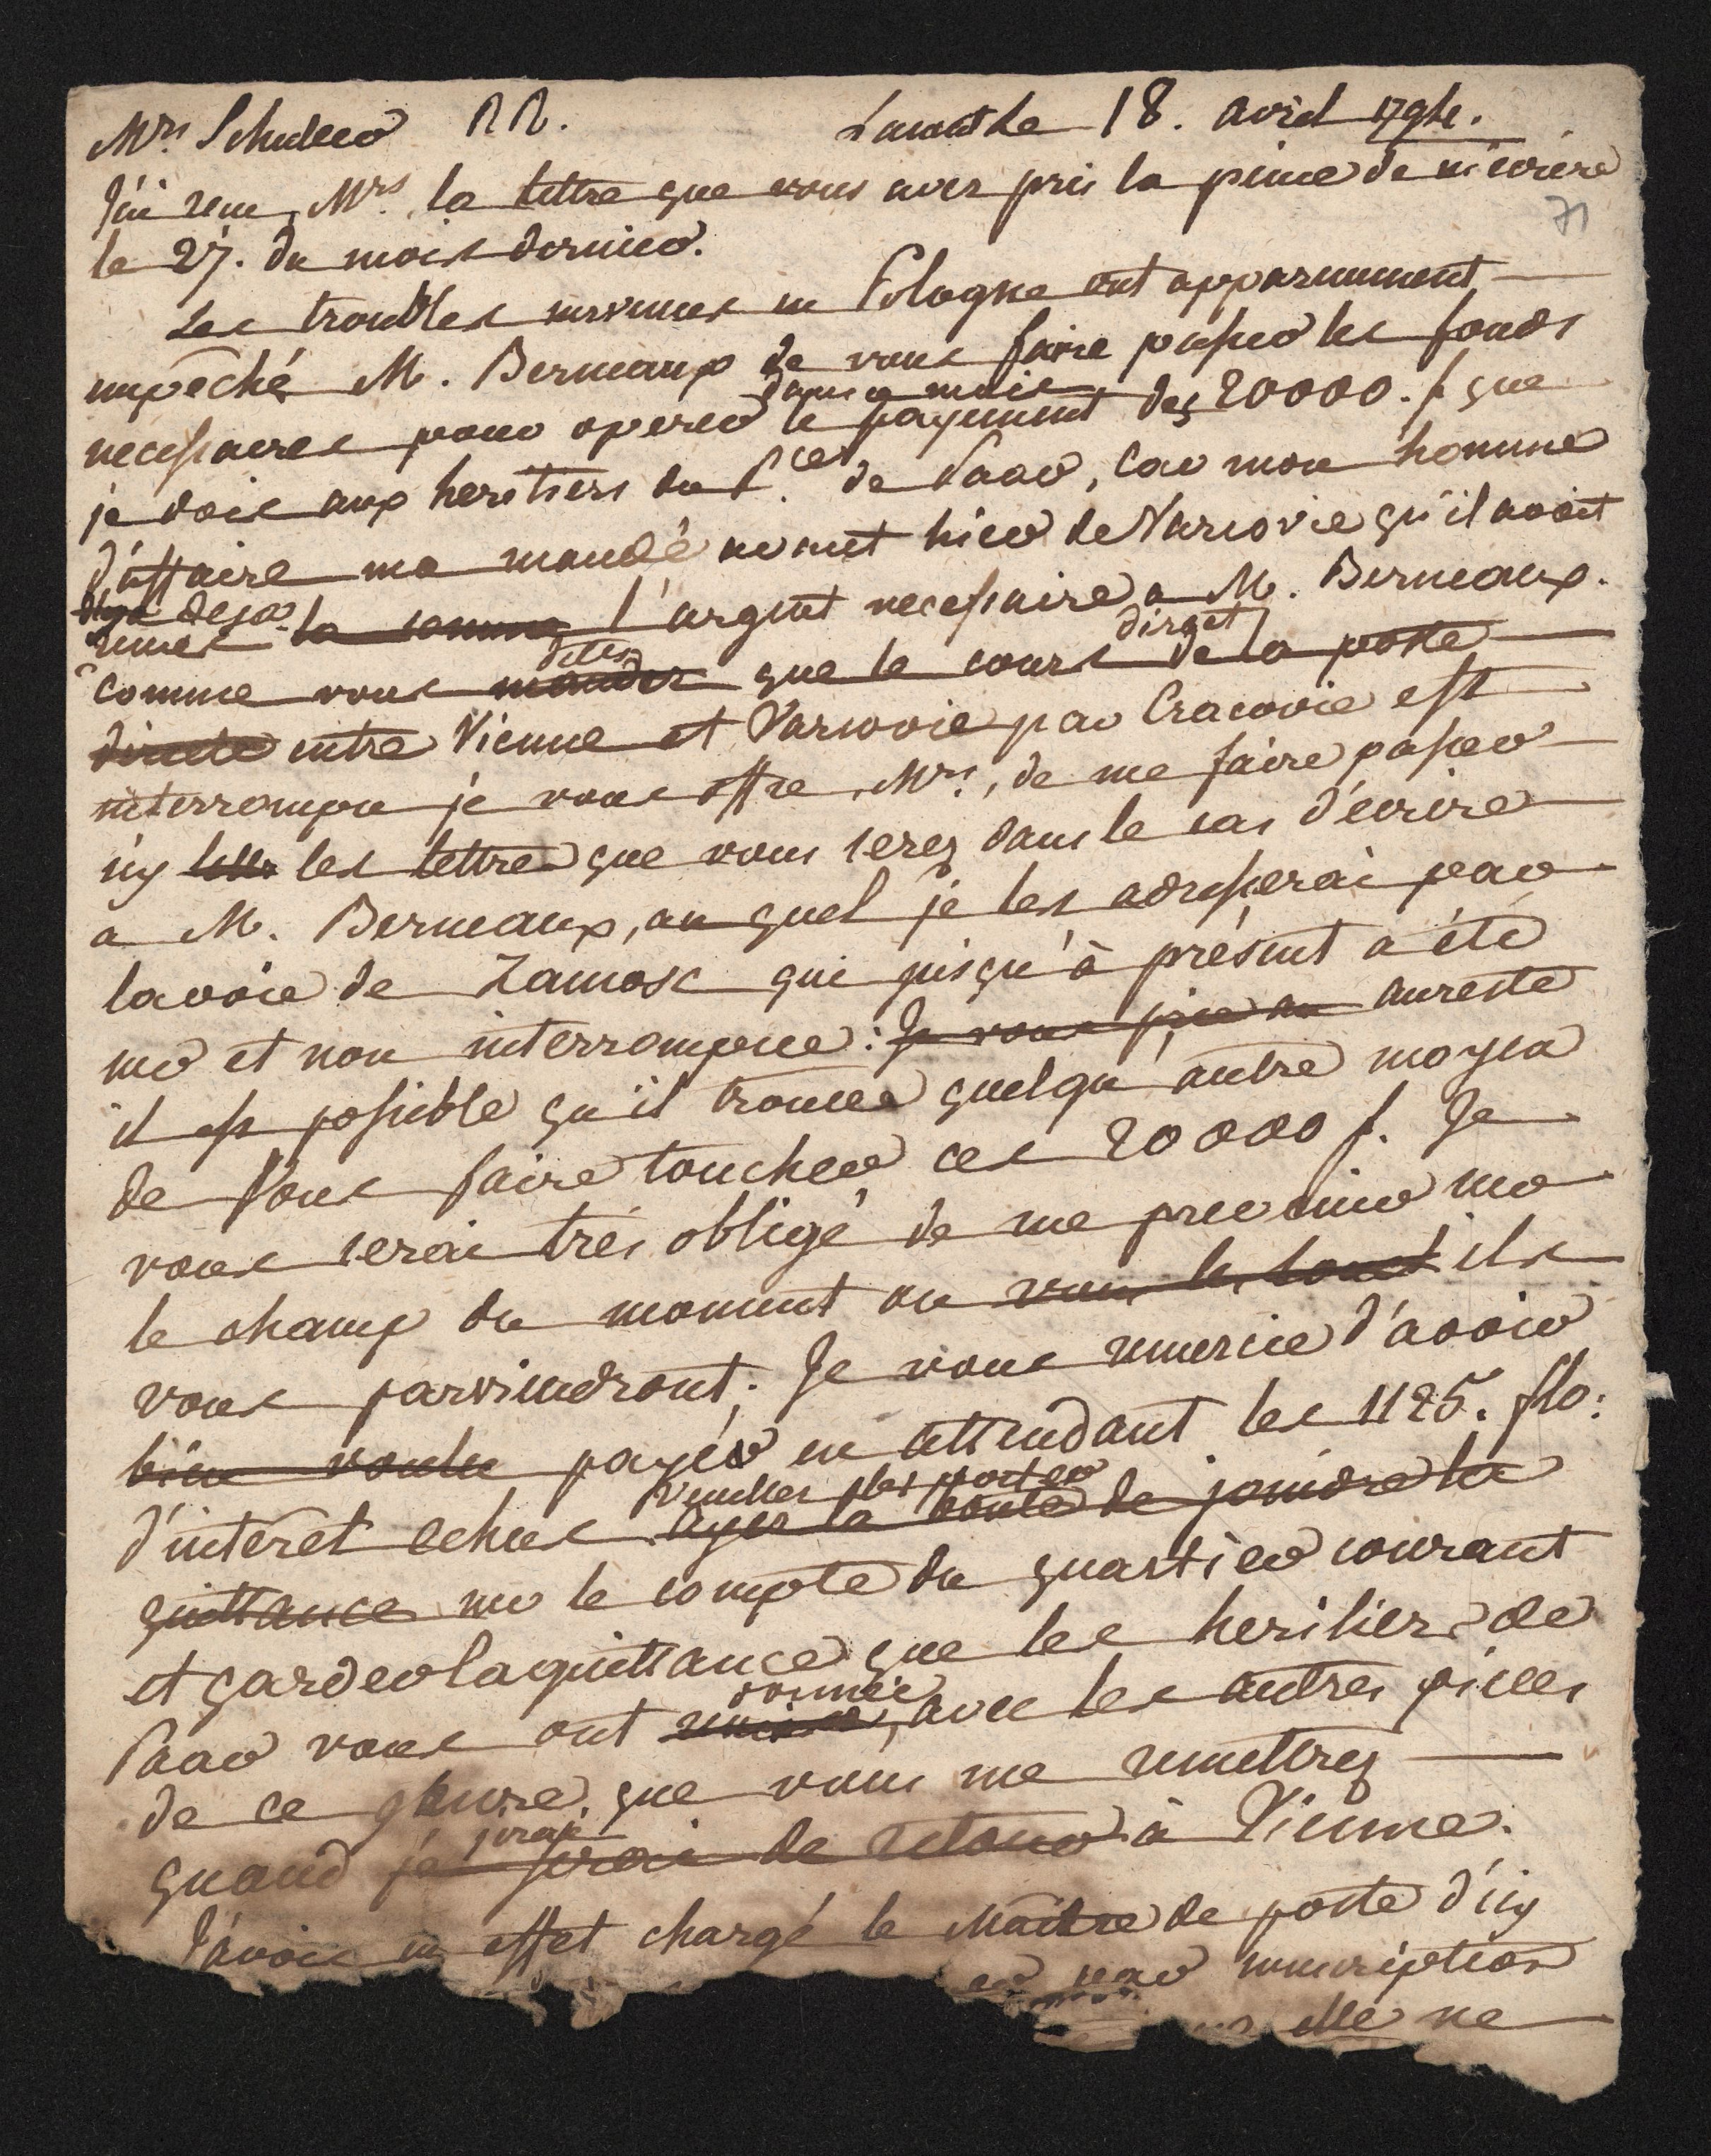 Mrs Schuller RR. Lancut Le 18. avril 1794.
J'ai reçu, Mrs, la lettre que vous avez pris la peine de m'ecrire
71
le 27. du mois dernier.
Les troubles survenues en Pologne ont apparemment
empéché M. Berneaux de vous faire passer les fonds
dans ce mois
necessaires pour operer le payement des 20000. f que
je dois aux heritiers du P.ce de Paar, car mon homme
d'affaire ma mandé avant hier de Varsovie qu'il avoit
deja deja
remis la somme l'argent necessaire a M. Berneaux.
dites direct
comme vous mandez que le cours de la poste
directe entre Vienne et Varsovie par Cracovie est
interrompu je vous offre, Mrs, de me faire passer
icy les les lettres que vous serez dans le cas d'ecrire
a M. Berneaux, au quel je les adresserai par
la voie de Zamosc qui jusqu'à présent a été
sur et non interrompue: Je vous prie au aureste
il est possible qu'il trouve quelqu'autre moyen
de Vous faire toucher ces 20000 f. Je
vous serai très obligé de me prevenir sur
le champ du moment ou vous les ils
vous parviendront; Je vous remercie d'avoir
bien voulu payer en attendant les 1125. flo:
veuillez les porter
d'interet echus ayez la bonté de joindre la
quittance sur le compte du quartier courant
et garder la quittance que les heritiers de
donnée
Paar vous ont remise, avec les autres pieces
de ce genre que vous me remettrez
irai
quand je serai de retour à Vienne.
J'avois en effet chargé le Maitre de poste d'icy
par souscription
elle ne